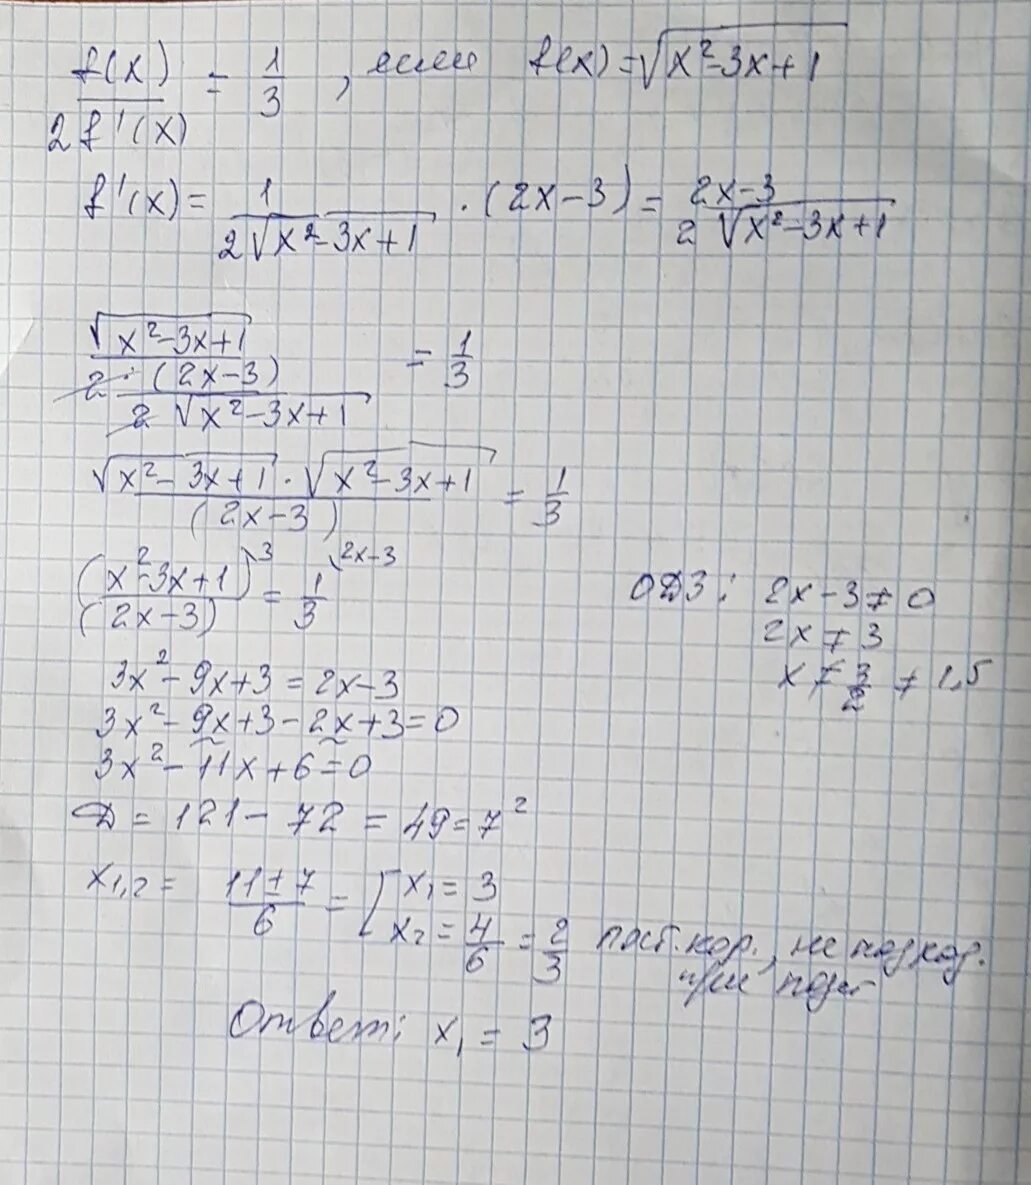 f(x) / 2f'(x) = 1/3 , если f(x) = √(x²-3x+1)
f'(x) = 1 / 2√(x²-3x+1) · (2x-3) = 2x-3 / 2√(x²-3x+1)
√(x²-3x+1) / (2·(2x-3) / 2√(x²-3x+1)) = 1/3
√(x²-3x+1) · √(x²-3x+1) / (2x-3) = 1/3
(x²-3x+1)^(3 / (2x-3) = 1/3^(2x-3
ОДЗ: 2x-3 ≠ 0
2x ≠ 3
x ≠ 3/2 ≠ 1,5
3x²-9x+3 = 2x-3
3x²-9x+3-2x+3=0
3x²-11x+6=0
Д = 121-72 = 49 = 7²
x₁,₂ = 11±7 / 6 = [ x₁ = 3
x₂ = 4/6 = 2/3 пост. кор., не подход.
при подст
Ответ: x₁ = 3